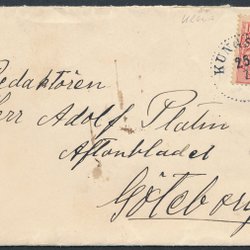 KUN
25
Redaktören
Herr Adolf Platin
Aftonbladet
Göteborg